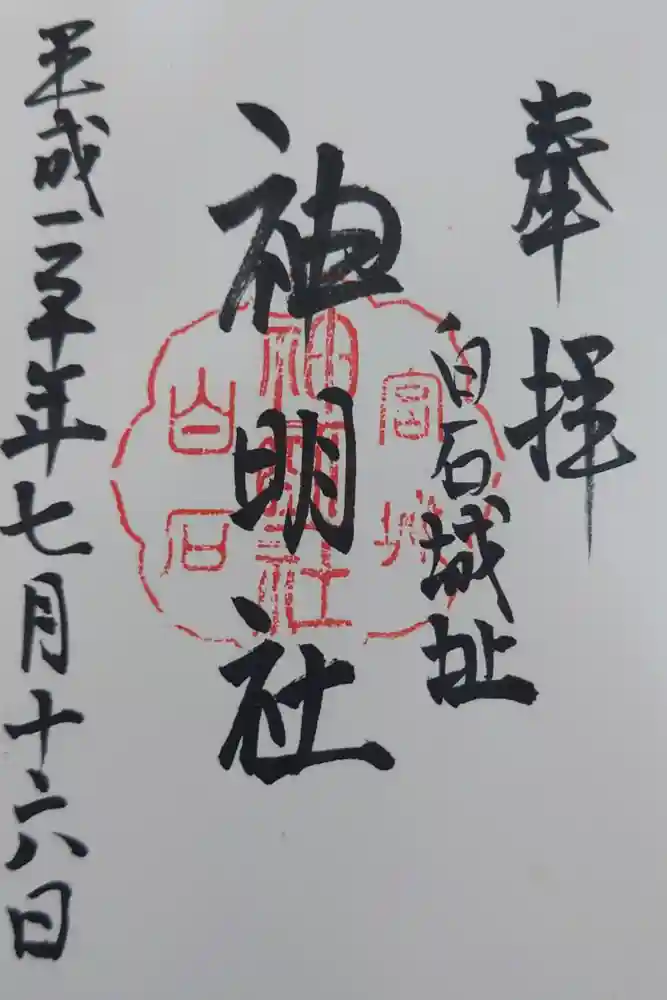 奉拝
白石城址
神明社
平成三十年七月十六日
宮城
神明社
白石